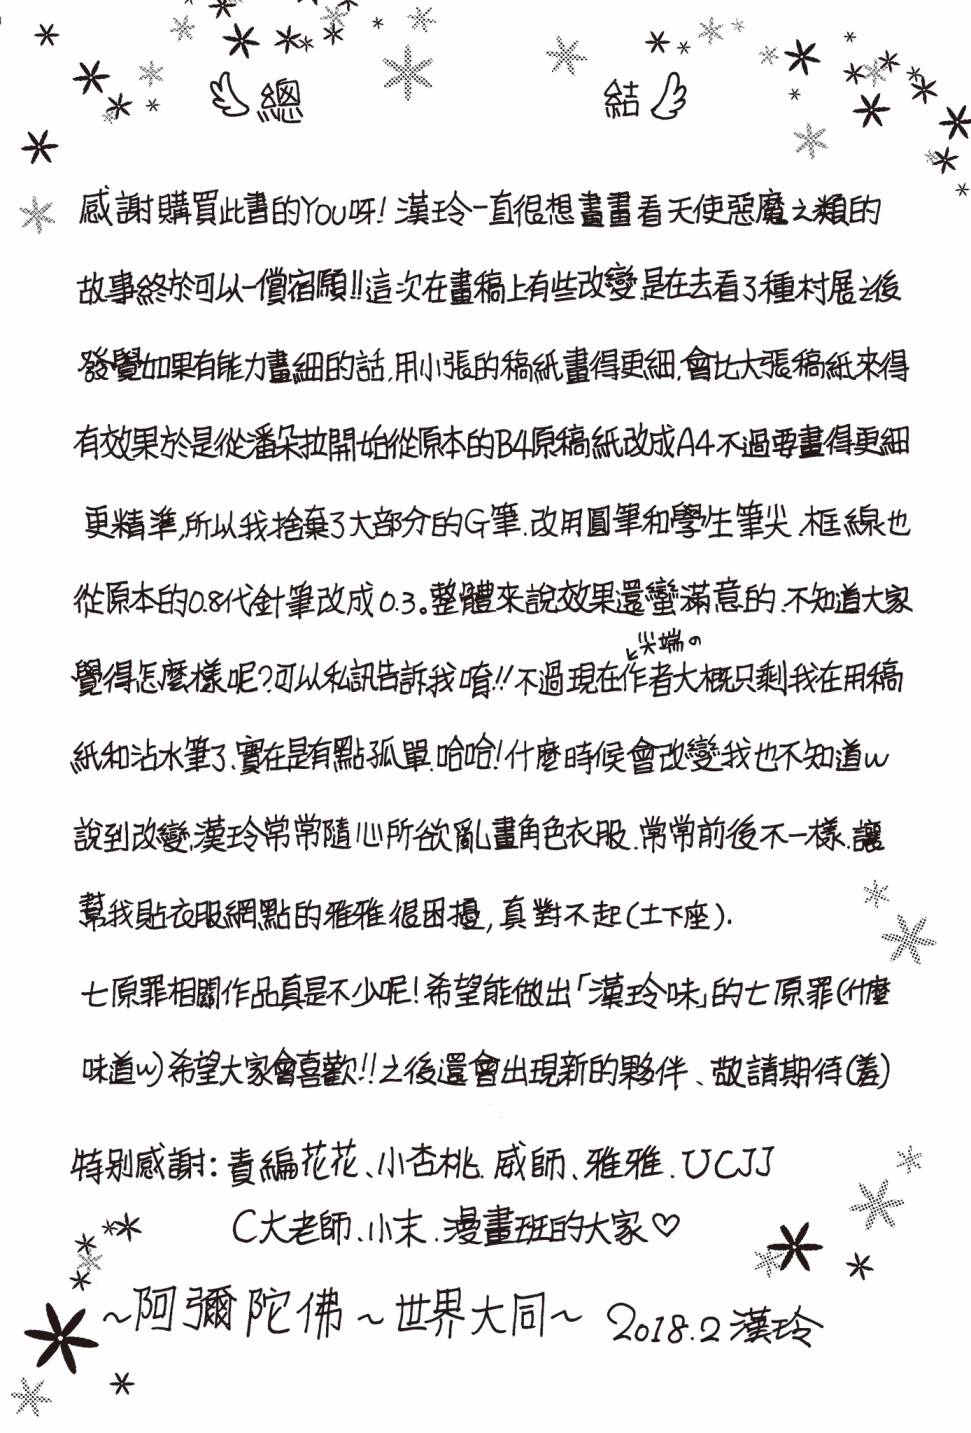 總結
感謝購買此書的You呀!漢玲一直很想畫畫看天使惡魔之類的
故事終於可以一償宿願!!這次在畫稿上有些改變.是在去看了種村展之後
發覺如果有能力畫細的話,用小張的稿紙畫得更細,會比大張稿紙來得
有效果於是從潘朵拉開始從原本的B4原稿紙改成A4不過要畫得更細
更精準,所以我捨棄了大部分的G筆.改用圓筆和學生筆尖、框線也
從原本的0.8代針筆改成0.3。整體來說效果還蠻滿意的.不知道大家
尖端の
覺得怎麼樣呢?可以私訊告訴我唷!!不過現在作者大概只剩我在用稿
紙和沾水筆了、實在是有點孤單.哈哈!什麼時候會改變我也不知道w
說到改變,漢玲常常隨心所欲亂畫角色衣服.常常前後不一樣.讓
幫我貼衣服網點的雅雅很困擾,真對不起(土下座).
七原罪相關作品真是不少呢!希望能做出「漢玲味」的七原罪(什麼
味道w)希望大家會喜歡!!之後還會出現新的夥伴、敬請期待(羞)
特別感謝:責編花花、小杏桃.威師、雅雅.UCJJ
C大老師、小末.漫畫班的大家♡
~阿彌陀佛~世界大同~ 2018.2 漢玲